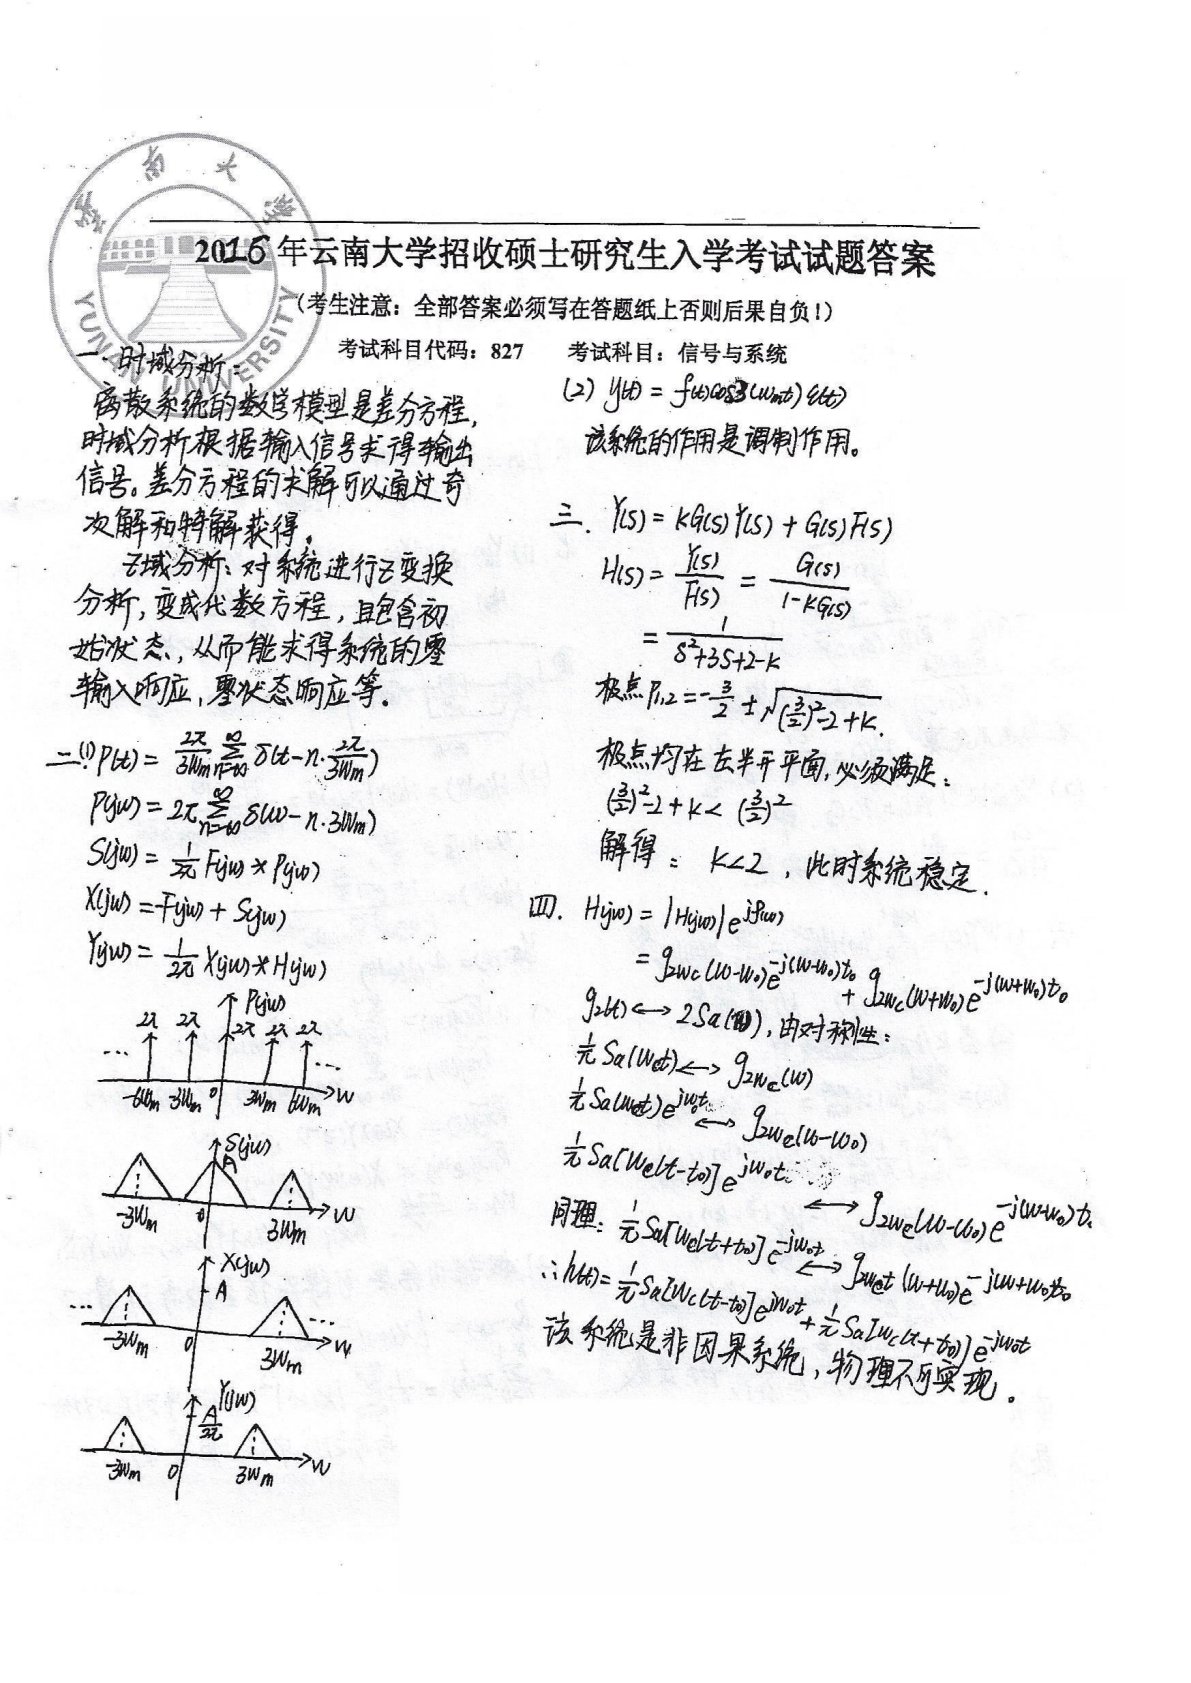 云南大学
YUNNAN UNIVERSITY
2016年云南大学招收硕士研究生入学考试试题答案
(考生注意：全部答案必须写在答题纸上否则后果自负！)
考试科目代码：827 考试科目：信号与系统
一. 时域分析：
离散系统的数学模型是差分方程，
时域分析根据输入信号求得输出
信号。差分方程的求解可以通过奇
次解和特解获得。
Z域分析：对系统进行Z变换
分析，变成代数方程，且包含初
始状态，从而能求得系统的零
输入响应，零状态响应等。
二.(1) P(t) = 2π/3Wm ∑_{n=-∞}^{∞} δ(t-n·2π/3Wm)
P(jw) = 2π ∑_{n=-∞}^{∞} δ(w-n·3Wm)
S(jw) = 1/2π F(jw) * P(jw)
X(jw) = F(jw) + S(jw)
Y(jw) = 1/2π X(jw) * H(jw)
P(jw)
2π 2π 2π 2π 2π
... ...
-6Wm -3Wm 0 3Wm 6Wm W
S(jw)
A
-3Wm 0 3Wm W
X(jw)
A
... ...
-3Wm 0 3Wm W
Y(jw)
A/2π
-3Wm 0 3Wm W
(2) y(t) = f(t)cos3(Wmt)ε(t)
该系统的作用是调制作用。
三. Y(s) = KG(s)Y(s) + G(s)F(s)
H(s) = Y(s)/F(s) = G(s)/1-KG(s)
= 1/S²+3S+2-K
极点P1,2 = -3/2 ± √(3/2)²-2+K.
极点均在左半开平面，必须满足：
(3/2)²-2+K < (3/2)²
解得： K<2 ，此时系统稳定.
四. H(jw) = |H(jw)|e^{jφ(w)}
= g2wc(w-w0)e^{-j(w-w0)t0} + g2wc(w+w0)e^{-j(w+w0)t0}
g2(t) ↔ 2Sa(w)，由对称性：
1/π Sa(wct) ↔ g2wc(w)
1/π Sa(wct)e^{jw0t} ↔ g2wc(w-w0)
1/π Sa[wc(t-t0)]e^{jw0t}
↔ g2wc(w-w0)e^{-j(w-w0)t0}
同理：1/π Sa[wc(t+t0)]e^{-jw0t} ↔ g2wct(w+w0)e^{-j(w+w0)t0}
∴h(t) = 1/π Sa[wc(t-t0)]e^{jw0t} + 1/π Sa[wc(t+t0)]e^{-jw0t}
该系统是非因果系统，物理不可实现。